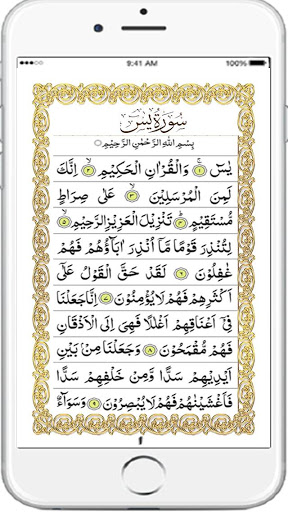 9:41 AM 100%
سُوْرَةُ يٰسٓ
بِسْمِ اللّٰهِ الرَّحْمٰنِ الرَّحِيْمِ
يٰسٓ ۝۱ وَالْقُرْاٰنِ الْحَكِيْمِ ۝۲ اِنَّكَ
لَمِنَ الْمُرْسَلِيْنَ ۝۳ عَلٰى صِرَاطٍ
مُّسْتَقِيْمٍ ۝۴ تَنْزِيْلَ الْعَزِيْزِ الرَّحِيْمِ ۝۵
لِتُنْذِرَ قَوْمًا مَّاۤ اُنْذِرَ اٰبَآؤُهُمْ فَهُمْ
غٰفِلُوْنَ ۝۶ لَقَدْ حَقَّ الْقَوْلُ عَلٰۤى
اَكْثَرِهِمْ فَهُمْ لَا يُؤْمِنُوْنَ ۝۷ اِنَّا جَعَلْنَا
فِيْۤ اَعْنَاقِهِمْ اَغْلٰلًا فَهِىَ اِلَى الْاَذْقَانِ
فَهُمْ مُّقْمَحُوْنَ ۝۸ وَجَعَلْنَا مِنْۢ بَيْنِ
اَيْدِيْهِمْ سَدًّا وَّمِنْ خَلْفِهِمْ سَدًّا
فَاَغْشَيْنٰهُمْ فَهُمْ لَا يُبْصِرُوْنَ ۝۹ وَسَوَآءٌ